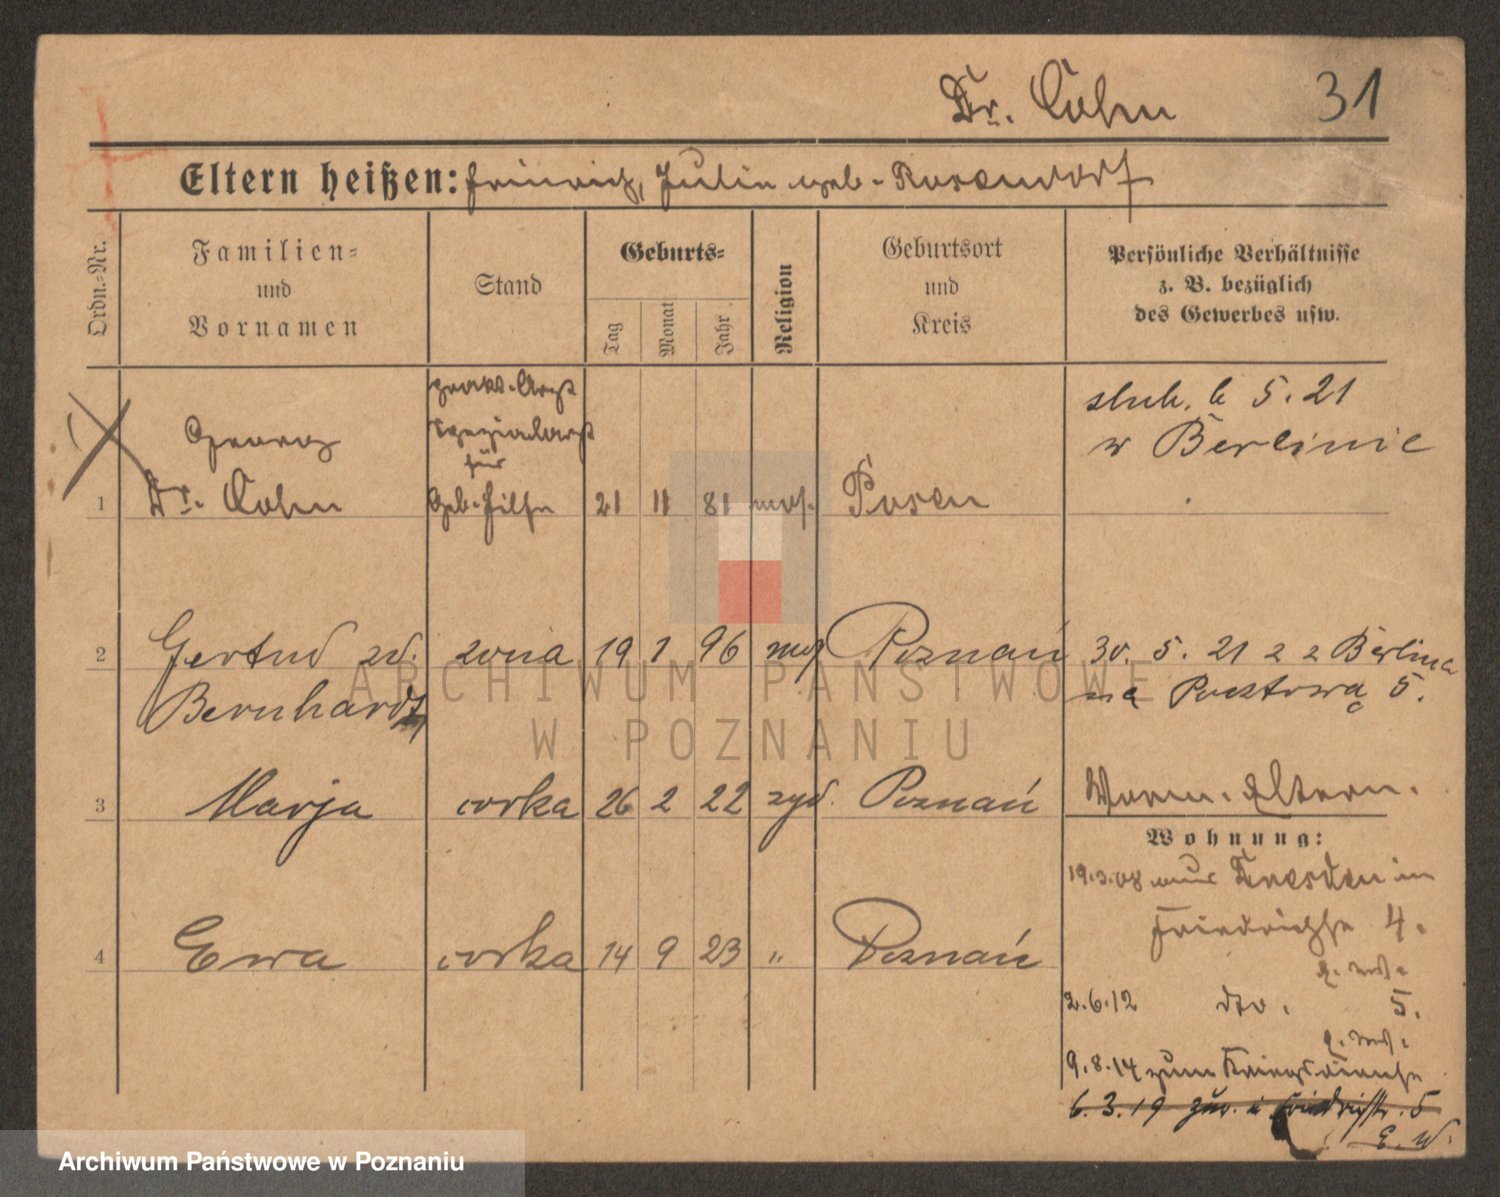 Dr. Cohn
31
Eltern heißen: Heinrich, Julie geb. Rosendorf
Ordn.-Nr.
Familien-
und
Vornamen
Stand
Geburts-
Tag
Monat
Jahr
Religion
Geburtsort
und
Kreis
Persönliche Verhältnisse
z. B. bezüglich
des Gewerbes usw.
prakt. Arzt
Spezialarzt
für
Geb. Hilfe
Georg
1 Dr. Cohn 21 11 81 mos. Posen
ślub. 6 5. 21
w Berlinie
2 Gertrud zd. żona 19 1 96 moj Poznań 30. 5. 21 z z Berlina
Bernhardt na Pocztową 5.
3 Marja córka 26 2 22 żyd. Poznań
Eltern.
Wohnung:
19.3.08 aus Dresden in
Friedrichstr 4.
4 Ewa córka 14 9 23 " Poznań
2.6.12 dto. 5.
9.8.14 zum Kriegsdienste
6.3.19 zur. i Friedrichstr. 5
E. W.
ARCHIWUM PAŃSTWOWE
W POZNANIU
Archiwum Państwowe w Poznaniu